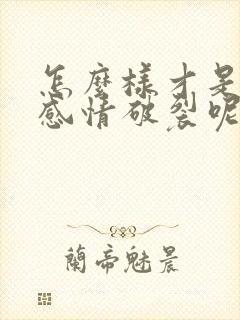 怎麼樣才是
感情破裂呢
蘭帝魅晨